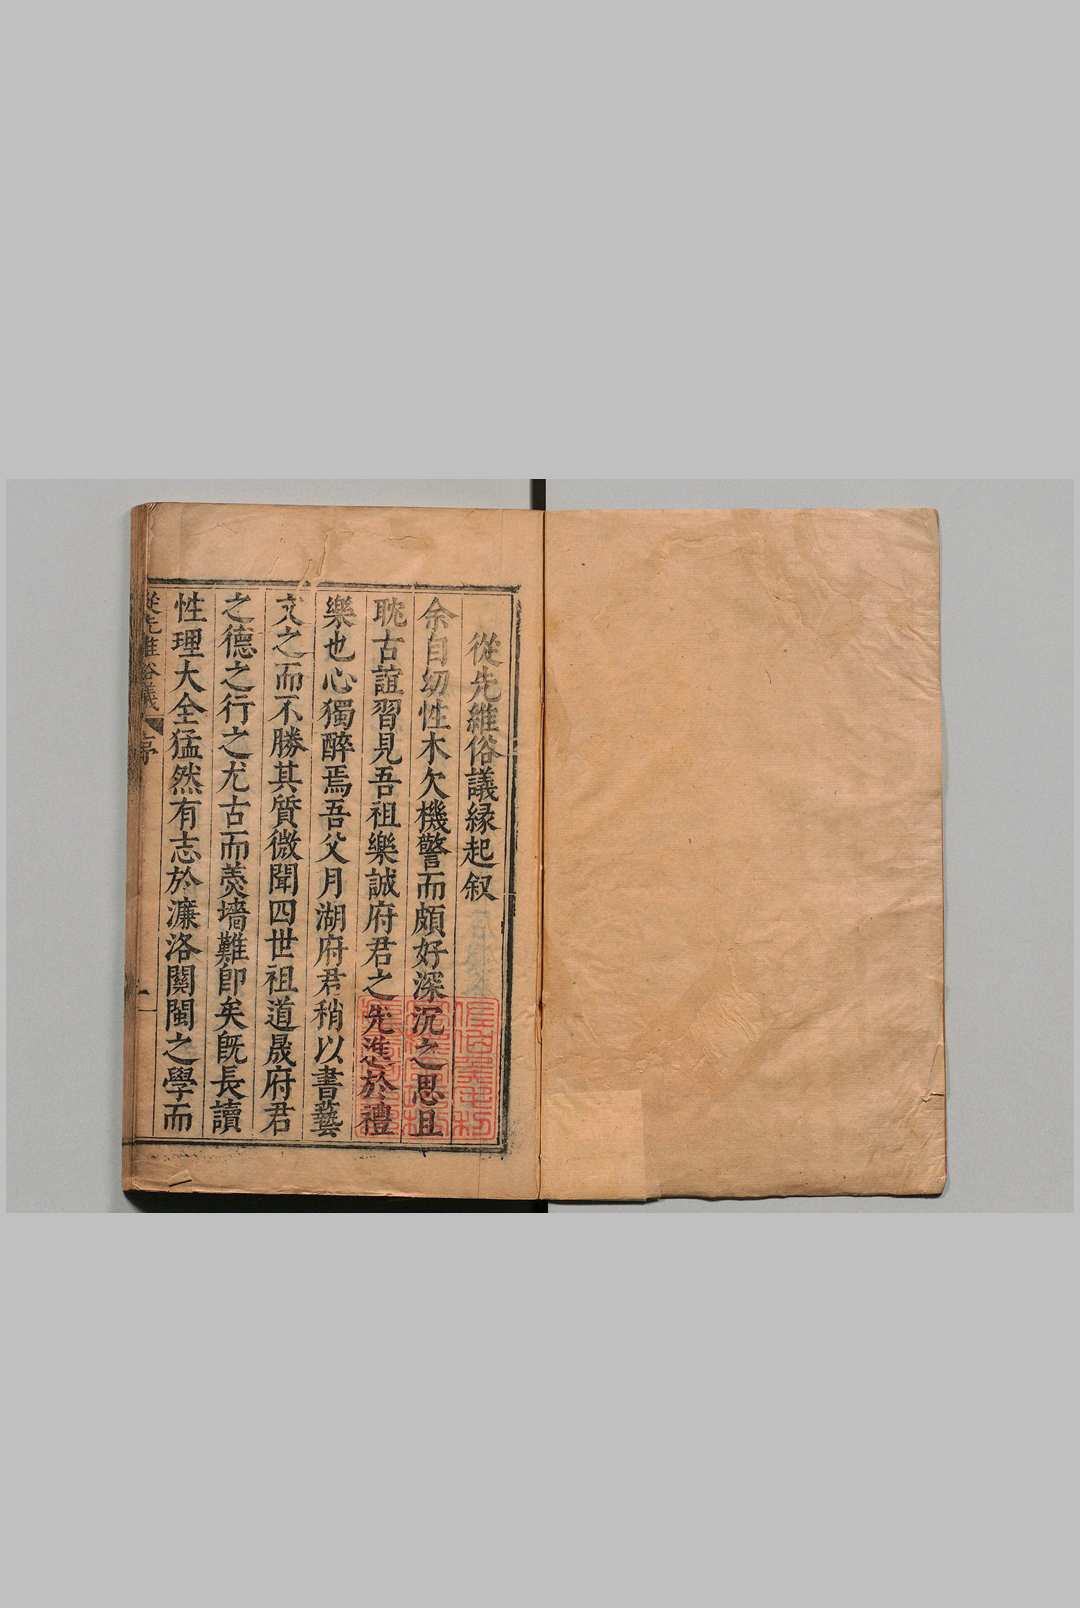 從先維俗議縁起叙
余自幼性木欠機警而頗好深沉之思且
耽古誼習見吾祖樂誠府君之先進於禮
樂也心獨醉焉吾父月湖府君稍以書藝
文之而不勝其質微聞四世祖道晟府君
之德之行之尤古而羮墻難卽矣旣長讀
性理大全猛然有志於濂洛關閩之學而
從先維俗議
序
一